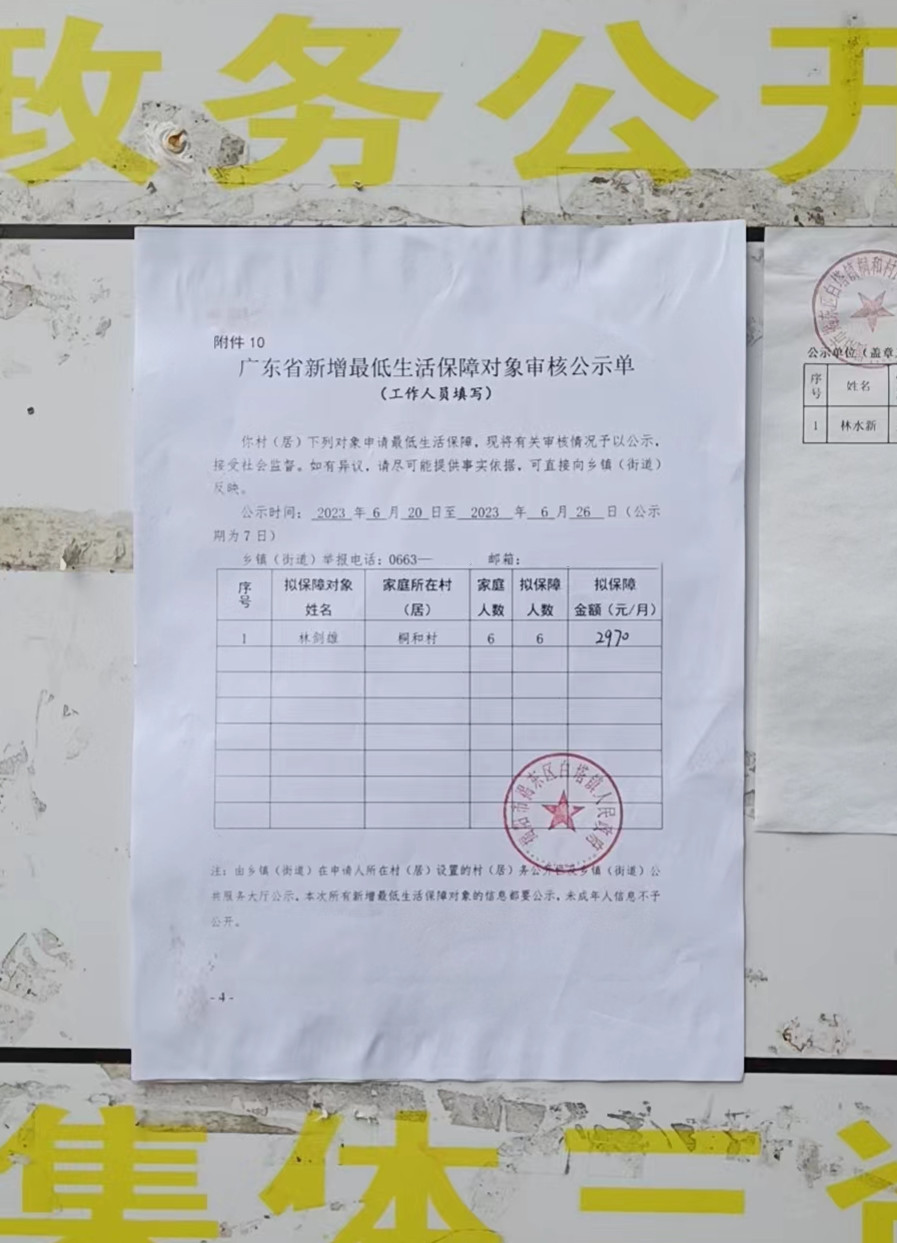 政务公开
附件 10
广东省新增最低生活保障对象审核公示单
（工作人员填写）
你村（居）下列对象申请最低生活保障，现将有关审核情况予以公示，
接受社会监督。如有异议，请尽可能提供事实依据，可直接向乡镇（街道）
反映。
公示时间： 2023 年 6 月 20 日至 2023 年 6 月 26 日（公示
期为 7 日）
乡镇（街道）举报电话：0663— 邮箱：
序号 拟保障对象姓名 家庭所在村（居） 家庭人数 拟保障人数 拟保障金额（元/月）
1 林剑雄 桐和村 6 6 2970
揭阳市揭东区白塔镇人民政府
注：由乡镇（街道）在申请人所在村（居）设置的村（居）务公开栏及乡镇（街道）公
共服务大厅公示，本次所有新增最低生活保障对象的信息都要公示，未成年人信息不予
公开。
- 4 -
揭东区白塔镇桐和村
公示单位（盖章
序号 姓名
1 林水新
集体三